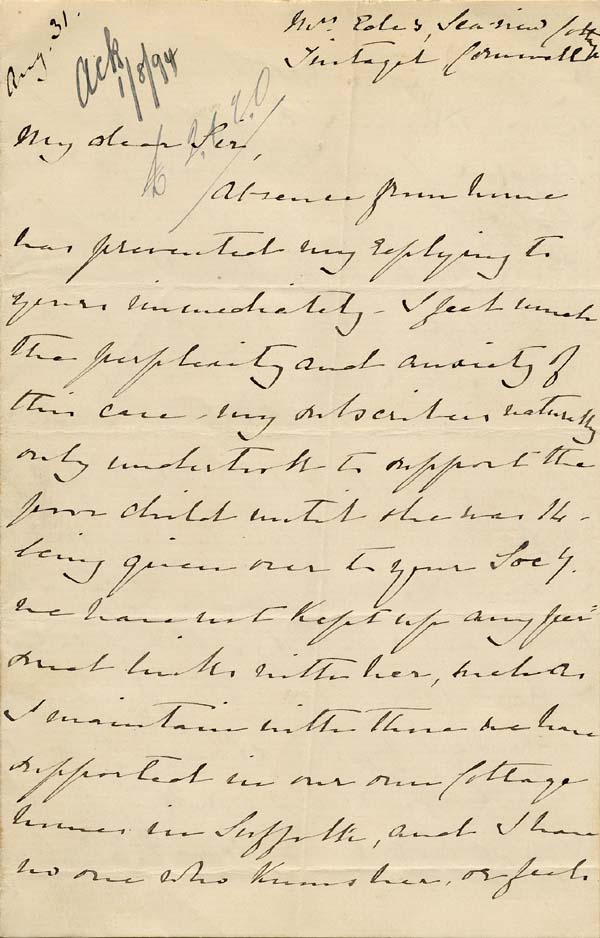 Aug. 31.
Ack
1/9/94
Mrs Ede's, Sea-view Cottg
Tintagel Cornwall
My dear Sir,
Absence from home
has prevented my replying to
yours immediately - I feel much
the perplexity and anxiety of
this case - my subscribers naturally
only undertook to support the
poor child until she was 16 -
being given over to your Socy.
we have not kept up any per-
sonal links with her, such as
I maintain with those we have
supported in our own Cottage
homes in Suffolk, and I have
no one who knows her, or feels